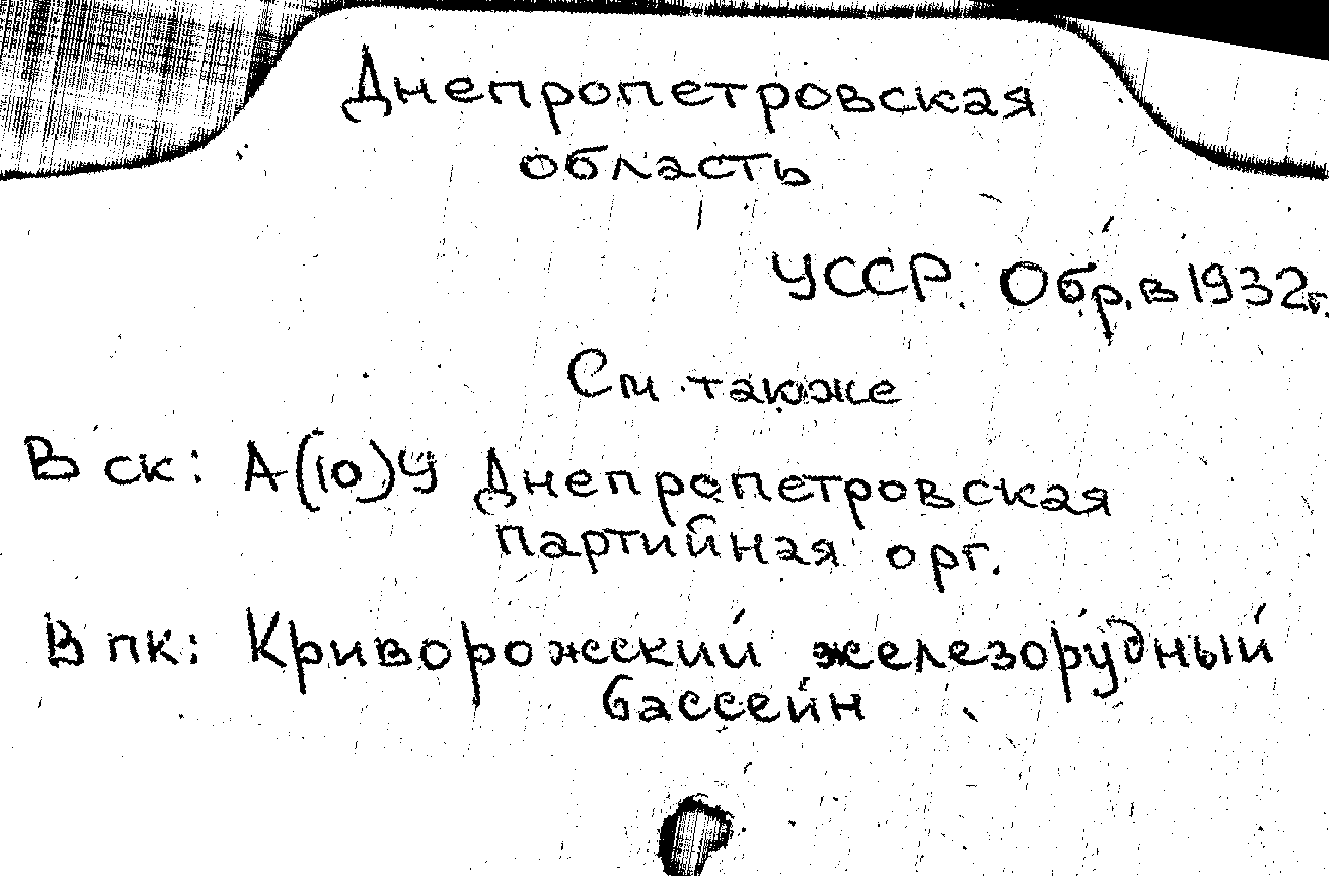 Днепропетровская
область
УССР. Обр. в 1932г.
См также
В ск: А(10)У Днепропетровская
партийная орг.
В пк: Криворожский железорудный
бассейн